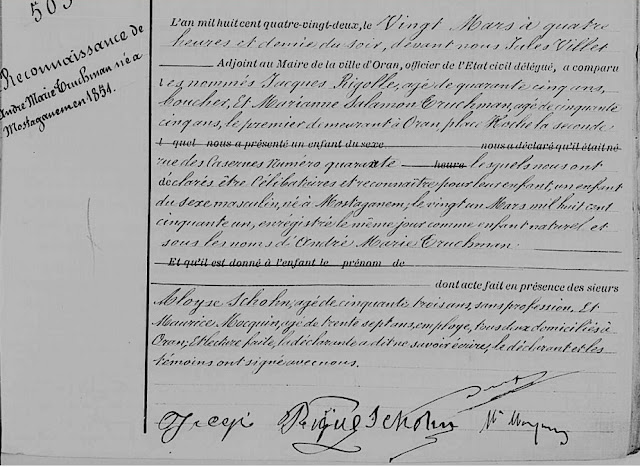 503
Reconnaissance de
André Marie Truchman né à
Mostaganem en 1851.
L'an mil huit cent quatre-vingt-deux, le Vingt Mars à quatre
heures et demie du soir, devant nous Jules Villet
Adjoint au Maire de la ville d'Oran, officier de l'Etat civil délégué, a comparu
Les nommés Jacques Rigolle, agé de quarante cinq ans,
boucher, Et Marianne Salamon Truchman, agé de cinquante
cinq ans, le premier demeurant à Oran, place Hoche la seconde
t quel nous a présenté un enfant du sexe nous a déclaré qu'il était né
rue des Casernes Numéro quarante heure lesquels nous ont
déclarés être Célibataires et reconnaître pour leur enfant, un enfant
du sexe masculin, né à Mostaganem, le vingt un Mars mil huit cent
cinquante un, enregistré le même jour comme enfant naturel et
sous les noms d'André Marie Truchman.
Et qu'il est donné à l'enfant le prénom de
dont acte fait en présence des sieurs
Aloyse Schohn, agé de cinquante trois ans, sans profession, Et
Maurice Mocquin, agé de trente sept ans, employé, tous deux domiciliés à
Oran; Et lecture faite, la déclarante a dit ne savoir écrire, le déclarant et les
témoins ont signé avec nous.
Schohn